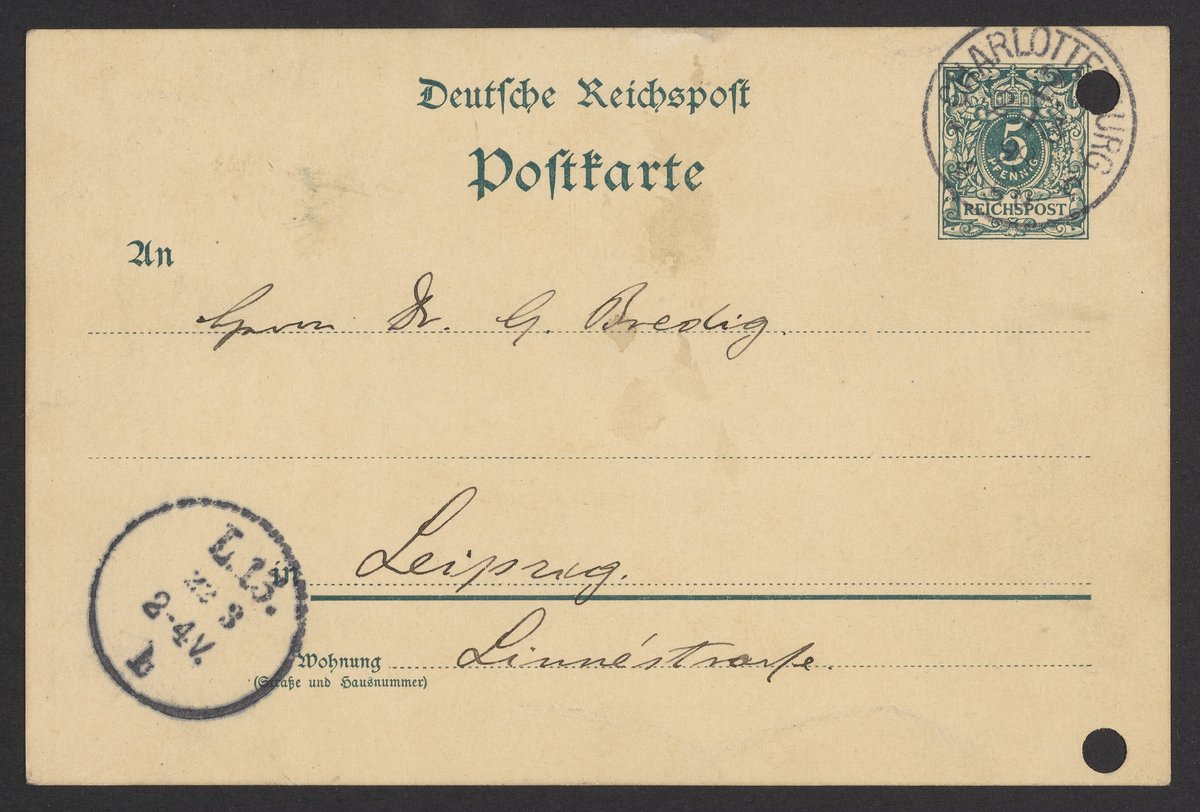 Deutsche Reichspost
Postkarte
CHARLOTTENBURG
5
PFENNIG
REICHSPOST
An
Herrn Dr. G. Bredig.
in Leipzig.
Wohnung Linnéstrasse.
(Straße und Hausnummer)
L.13.
22 3
2-4V.